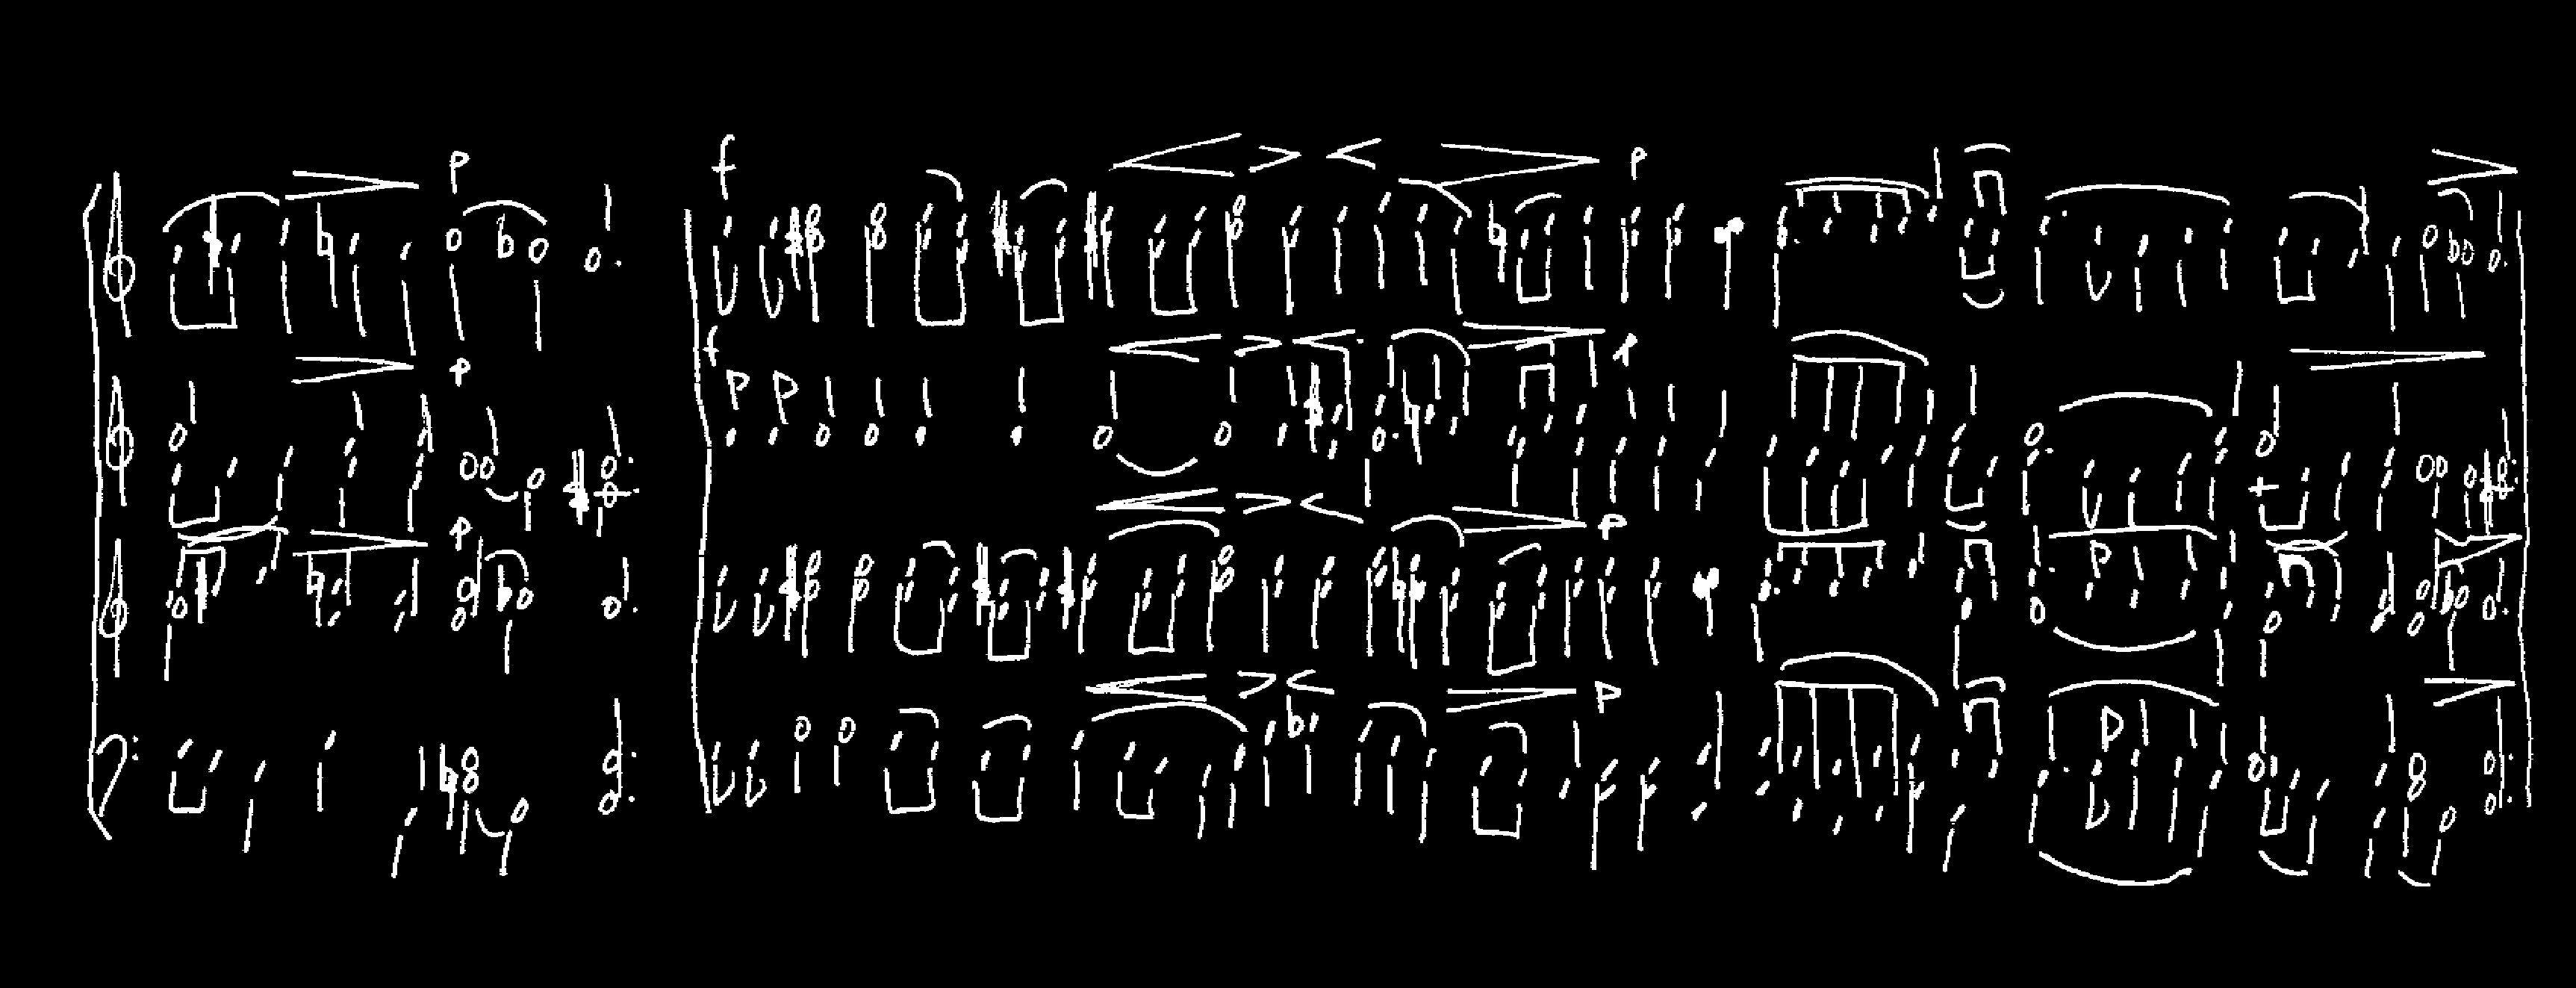 p
f
p
p
f
p
p
p
p